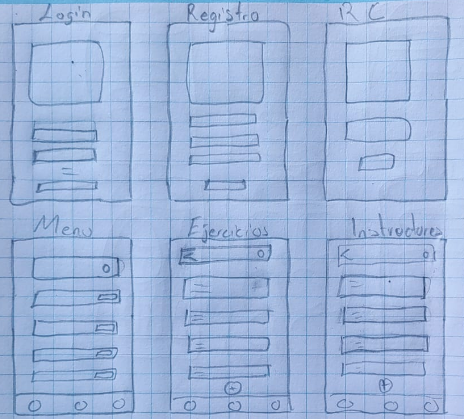 Login
Registro
R C
Menu
Ejercicios
Instructores